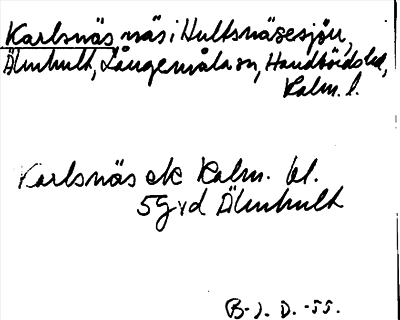 Karlsnäs näs i Hultsnäsesjön,
Älmhult, Långemåla sn, Handbörds hd,
Kalm. l.
Karlsnäs ek Kalm. bl.
5G vd Älmhult
B-J. D. -55.